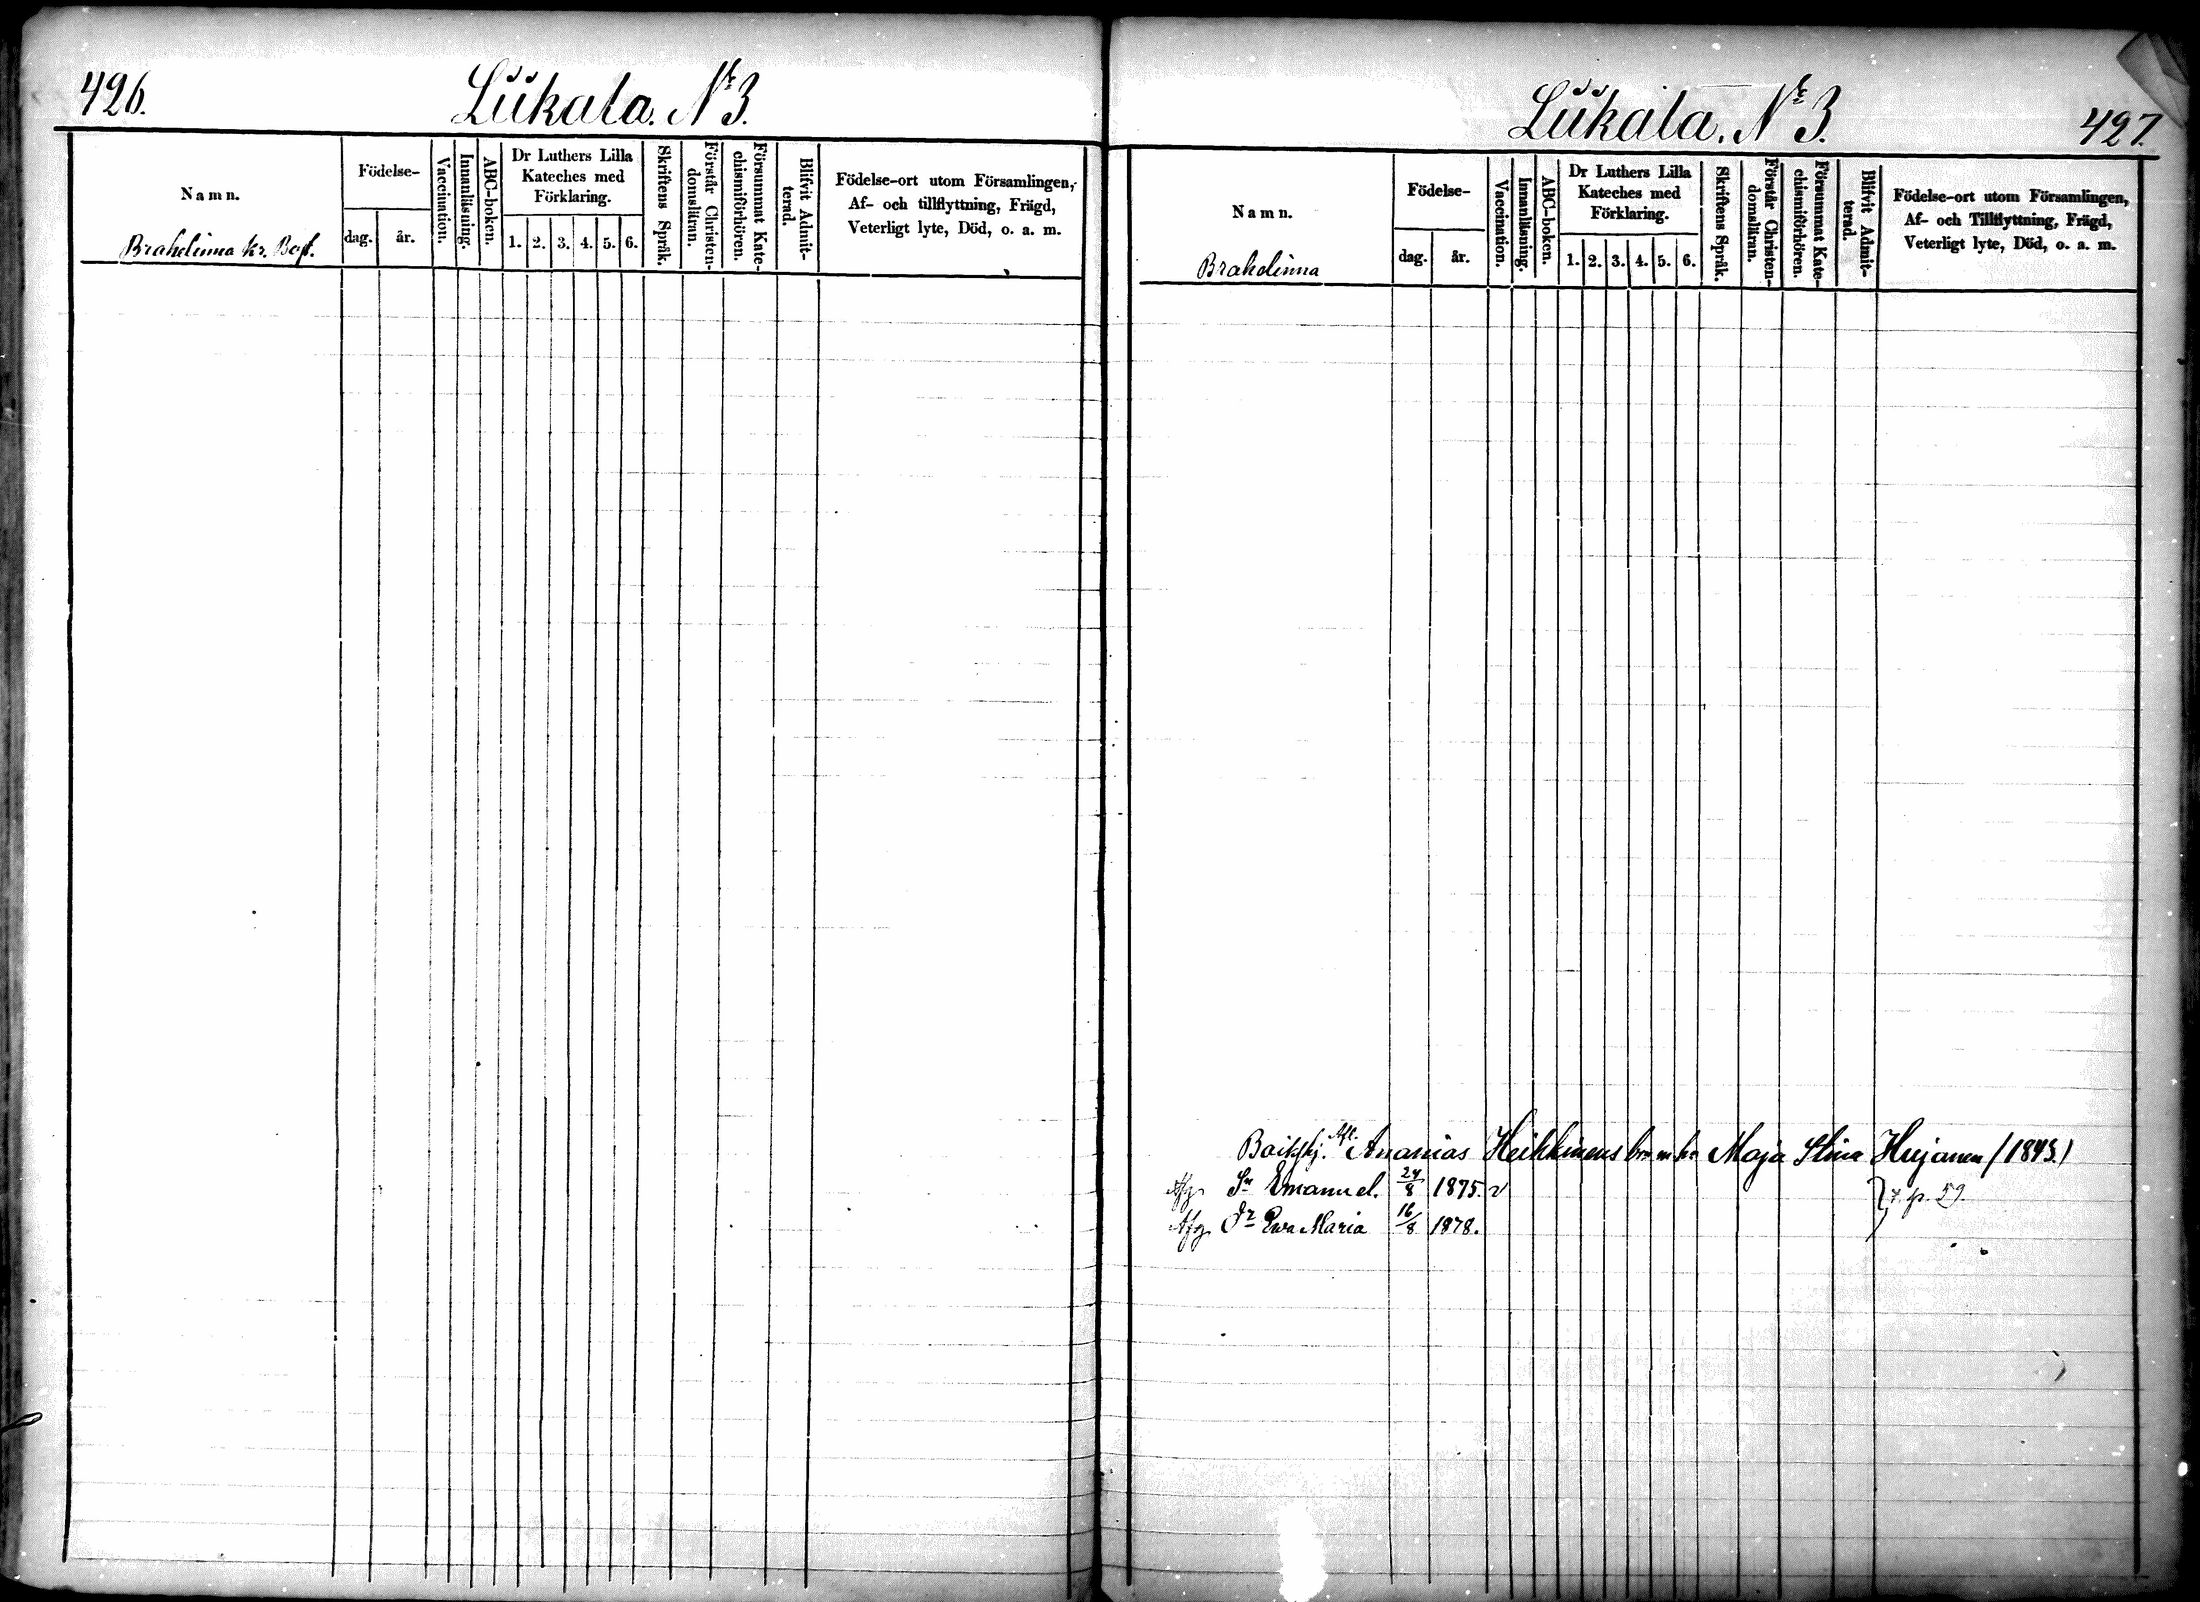 426.
Liikala. N:r 3.
Namn.
Brahelinna kr. Bost.
Födelse-
dag. år.
Vaccination.
Innanläsning.
ABC-boken.
Dr Luthers Lilla
Kateches med
Förklaring.
1. 2. 3. 4. 5. 6.
Skriftens Språk.
Förstår Christen-
domsläran.
Försummat Kate-
chismiförhören.
Blifvit Admit-
terad.
Födelse-ort utom Församlingen,
Af- och tillflyttning, Frägd,
Veterligt lyte, Död, o. a. m.
Liikala. N:r 3.
427.
Namn.
Brahelinna
Födelse-
dag. år.
Vaccination.
Innanläsning.
ABC-boken.
Dr Luthers Lilla
Kateches med
Förklaring.
1. 2. 3. 4. 5. 6.
Skriftens Språk.
Förstår Christen-
domsläran.
Försummat Kate-
chismiförhören.
Blifvit Admit-
terad.
Födelse-ort utom Församlingen,
Af- och Tillflyttning, Frägd,
Veterligt lyte, Död, o. a. m.
Ananias Heikkinens Maja Stina (1843.)
Afg Sn Emanuel. 24/8 1875. v
Afg Dr Ewa Maria 16/8 1878.
p. 59.